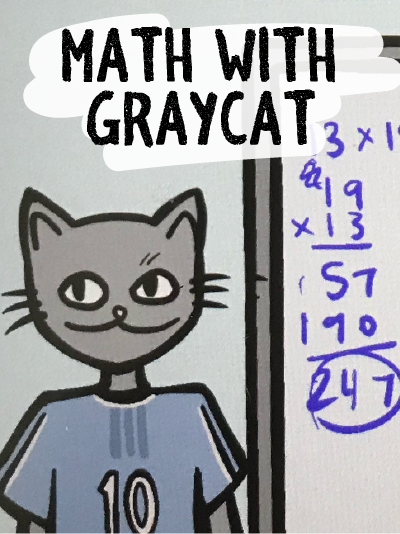 MATH WITH
GRAYCAT
13 x 1
19
x 13
57
190
247
10